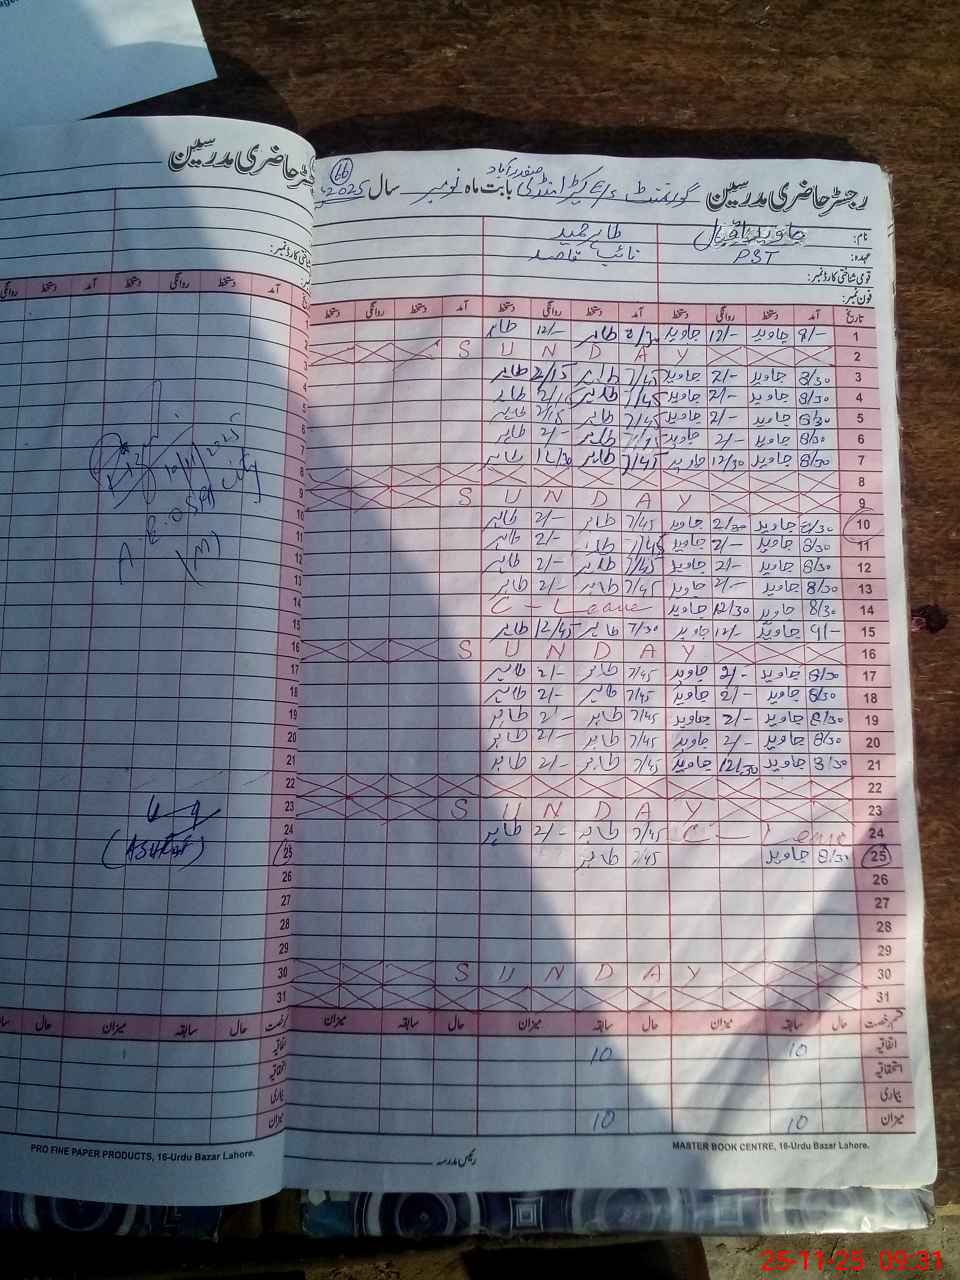 رجسٹر حاضری مدرسین گورنمنٹ بابت ماہ نومبر سال 2025
66
نام: جاوید اقبال طاہر حمید
عہدہ: PST نائب قاصد
قومی شناختی کارڈ نمبر:
فون نمبر:
تاریخ آمد دستخط روانگی دستخط آمد دستخط روانگی دستخط آمد دستخط روانگی دستخط
1 9/- جاوید 12/- جاوید طاہر 12/- طاہر
2 S U N D A Y
3 8/30 جاوید 2/- جاوید 7/45 طاہر 2/15 طاہر
4 8/30 جاوید 2/- جاوید 7/45 طاہر 2/15 طاہر
5 8/30 جاوید 2/- جاوید 7/45 طاہر 2/15 طاہر
6 8/30 جاوید 2/- جاوید 7/45 طاہر 2/- طاہر
7 8/30 جاوید 12/30 جاوید 7/45 طاہر 12/30 طاہر
8
9 S U N D A Y
10 8/30 جاوید 2/30 جاوید 7/45 طاہر 2/- طاہر
11 8/30 جاوید 2/- جاوید 7/45 طاہر 2/- طاہر
12 8/30 جاوید 2/- جاوید 7/45 طاہر 2/- طاہر
13 8/30 جاوید 2/- جاوید 7/45 طاہر 2/- طاہر
14 8/30 جاوید 12/30 جاوید C - Leave
15 9/- جاوید 12/- جاوید 7/30 طاہر 12/45 طاہر
16 S U N D A Y
17 8/30 جاوید 2/- جاوید 7/45 طاہر 2/- طاہر
18 8/30 جاوید 2/- جاوید 7/45 طاہر 2/- طاہر
19 8/30 جاوید 2/- جاوید 7/45 طاہر 2/- طاہر
20 8/30 جاوید 2/- جاوید 7/45 طاہر 2/- طاہر
21 8/30 جاوید 12/30 جاوید 7/45 طاہر 2/- طاہر
22
23 S U N D A Y
24 C - Leave 7/45 طاہر 2/- طاہر
25 8/30 جاوید 7/45 طاہر
26
27
28
29
30 S U N D A Y
31
قسم رخصت حال سابقہ میزان حال سابقہ میزان حال سابقہ میزان
اتفاقیہ 10 10
استحقاقیہ
بیماری
میزان 10 10
MASTER BOOK CENTRE, 16-Urdu Bazar Lahore.
رئیس مدرسہ
رجسٹر حاضری مدرسین
شناختی کارڈ نمبر:
آمد دستخط روانگی دستخط آمد دستخط روانگی
1
2
3
4
5
6
7
8
9
10
11
12
13
14
15
16
17
18
19
20
21
22
23
24
25
26
27
28
29
30
31
10/11/2025
A
(M)
(ASHRAF)
رخصت حال سابقہ میزان حال
اتفاقیہ
استحقاقیہ
بیماری
میزان
PRO FINE PAPER PRODUCTS, 16-Urdu Bazar Lahore.
25-11-25 09:31